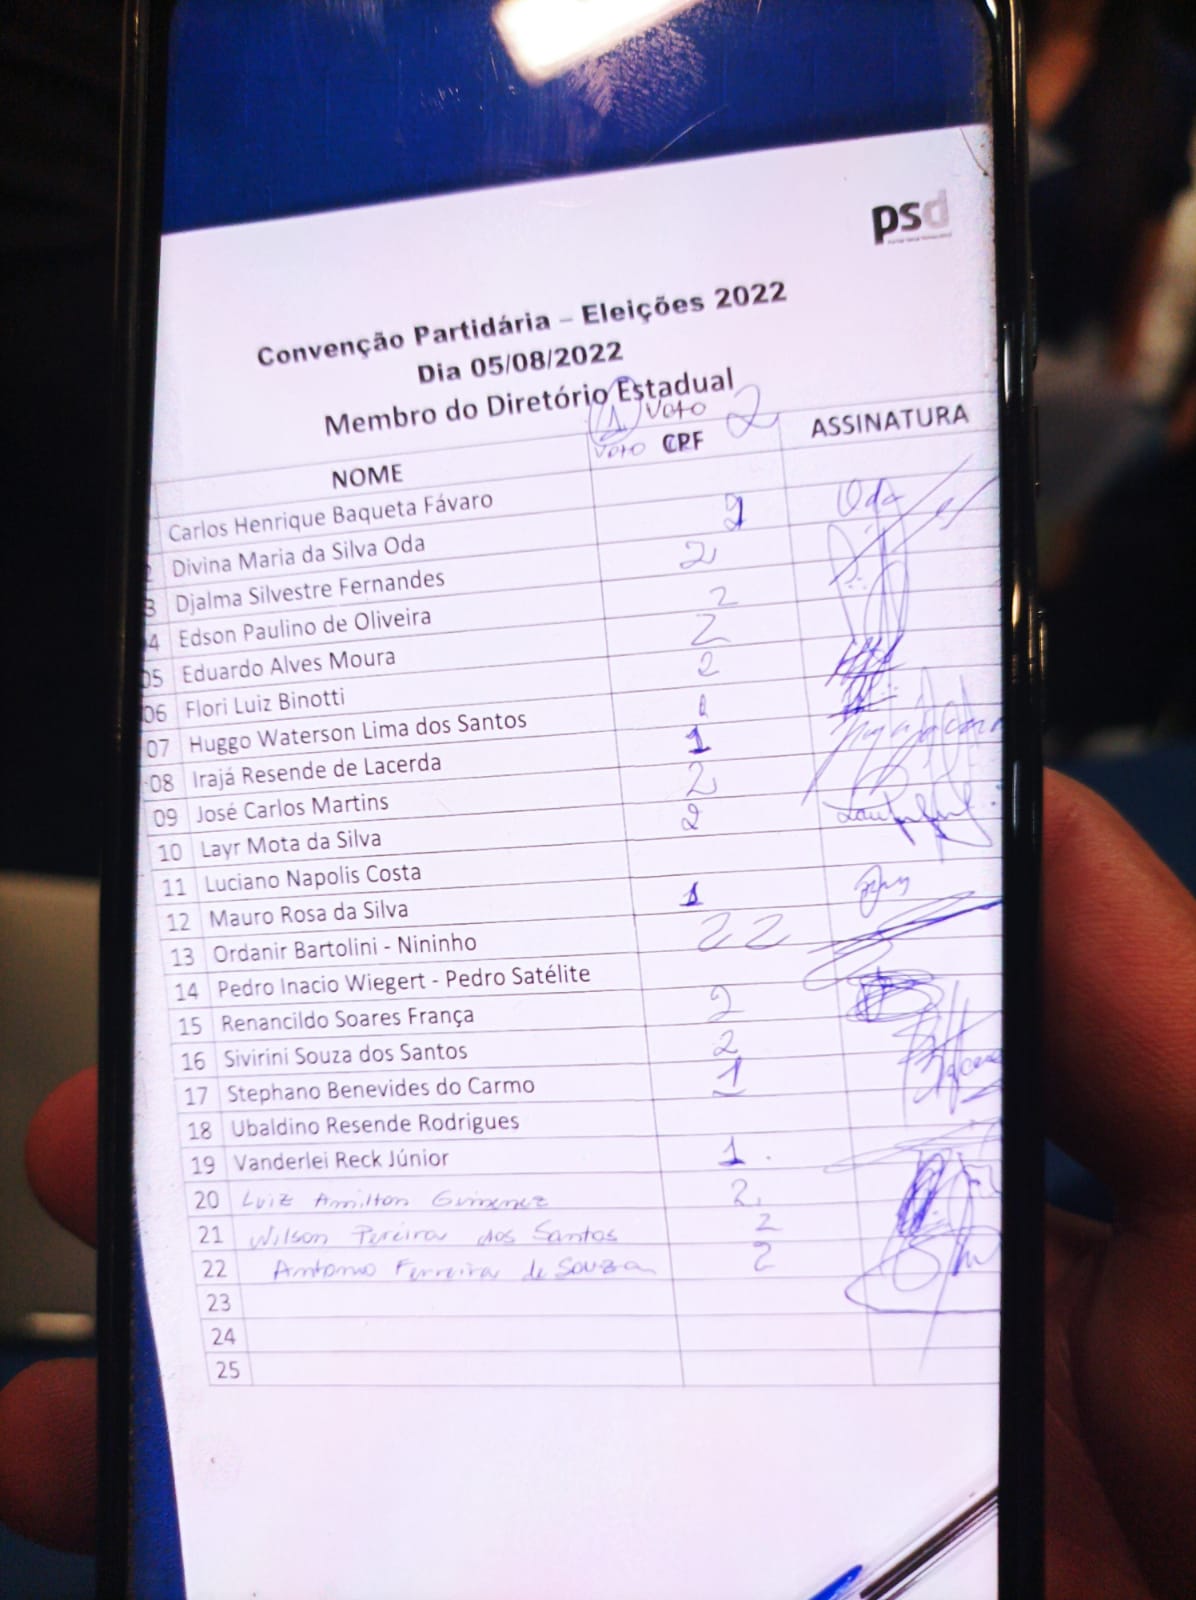 psd
Convenção Partidária – Eleições 2022
Dia 05/08/2022
Membro do Diretório Estadual
1 Voto 2
NOME Voto CPF ASSINATURA
Carlos Henrique Baqueta Fávaro
2 Divina Maria da Silva Oda Oda
3 Djalma Silvestre Fernandes 2
04 Edson Paulino de Oliveira 2
05 Eduardo Alves Moura 2
06 Flori Luiz Binotti 2
07 Huggo Waterson Lima dos Santos 1
08 Irajá Resende de Lacerda 1
09 José Carlos Martins 2
10 Layr Mota da Silva 2
11 Luciano Napolis Costa
12 Mauro Rosa da Silva 1
13 Ordanir Bartolini - Nininho 22
14 Pedro Inacio Wiegert - Pedro Satélite
15 Renancildo Soares França 2
16 Sivirini Souza dos Santos 2
17 Stephano Benevides do Carmo 1
18 Ubaldino Resende Rodrigues
19 Vanderlei Reck Júnior 1.
20 Luiz Amilton Gimenez 2.
21 Wilson Pereira dos Santos 2
22 Antonio Ferreira de Souza 2
23
24
25